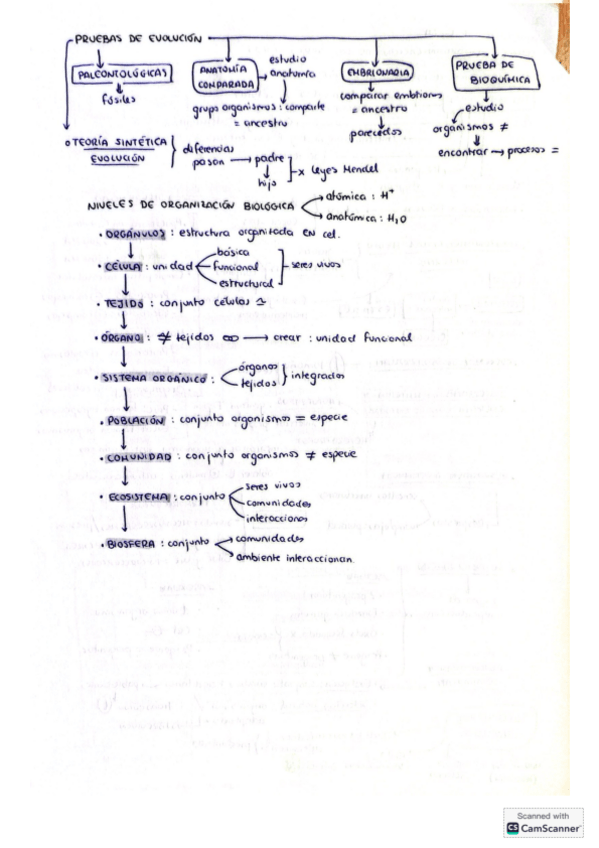 PRUEBAS DE EVOLUCIÓN
PALEONTOLÓGICAS
fósiles
ANATOMÍA COMPARADA → estudio anatomía
grupo organismos : comparte = ancestro
EMBRIONARIA
comparar embriones = ancestro
parecidos
PRUEBA DE BIOQUÍMICA
estudio
organismos ≠
encontrar → procesos =
TEORÍA SINTÉTICA EVOLUCIÓN
diferencias pasan → padre
hijo
x leyes Mendel
NIVELES DE ORGANIZACIÓN BIOLÓGICA
atómica : H⁺
anatómica : H₂O
• ORGÁNULOS : estructura organizada EN cel.
• CÉLULA : unidad
básica
funcional
estructural
seres vivos
• TEJIDO : conjunto células
• ÓRGANO : ≠ tejidos ∞ → crear : unidad funcional
• SISTEMA ORGÁNICO :
órganos
tejidos
integrados
• POBLACIÓN : conjunto organismos = especie
• COMUNIDAD : conjunto organismos ≠ especie
• ECOSISTEMA : conjunto
seres vivos
comunidades
interacciones
• BIOSFERA : conjunto
comunidades
ambiente interaccionan.
Scanned with
CS CamScanner